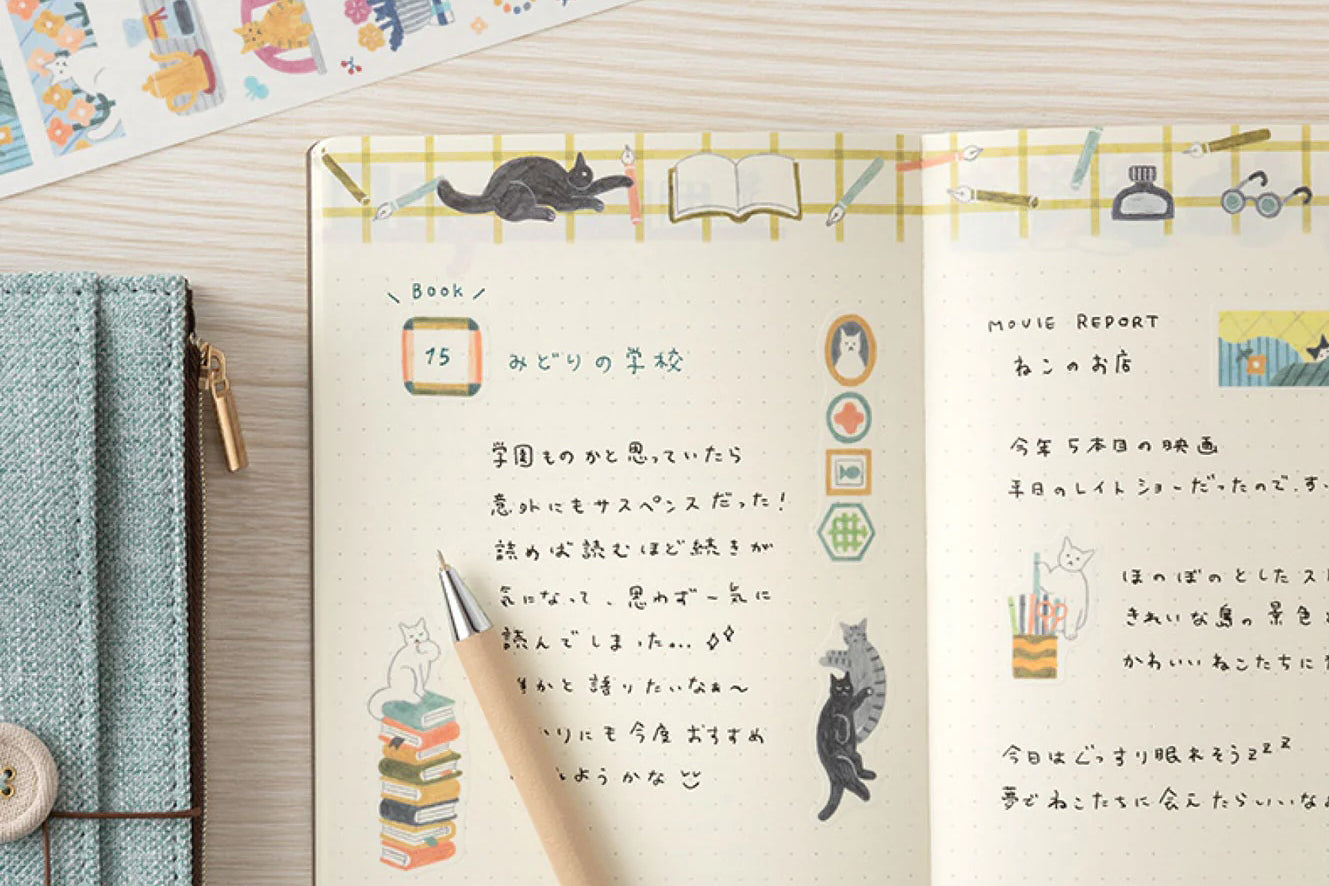 Book
15
みどりの学校
学園ものかと思っていたら
意外にもサスペンスだった!
読めば読むほど続きが
気になって、思わず一気に
読んでしまった...
かと語りたいなぁ〜
りにも今度おすすめ
ようかな
MOVIE REPORT
ねこのお店
今年5本目の映画
平日のレイトショーだったのです
ほのぼのとしたス
きれいな島の景色
かわいいねこたちに
今日はぐっすり眠れそうzzz
夢でねこたちに会えたらいいな